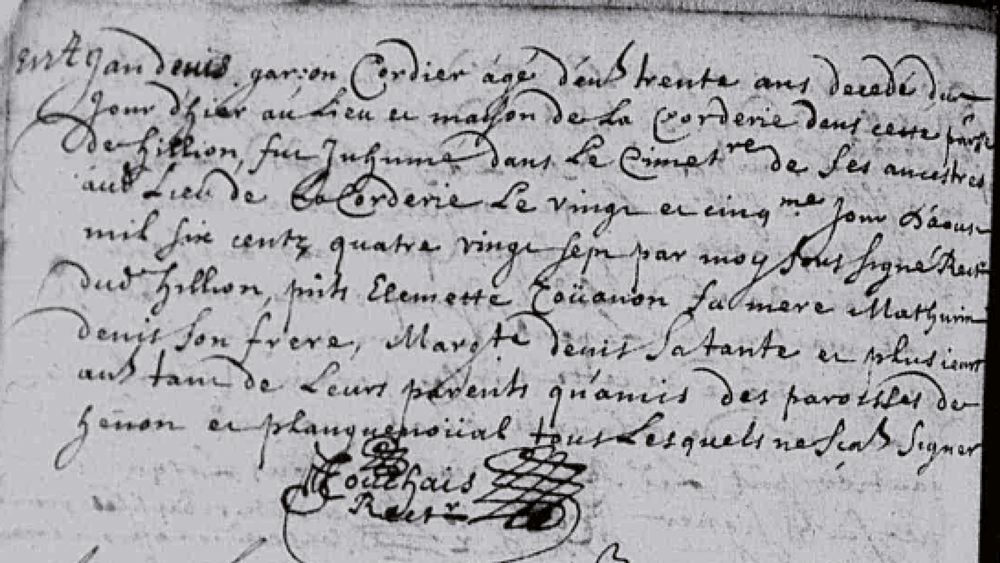 Jan denis garson Cordier agé d'env trente ans decedé du
Jour d'hier au Lieu et maison de La Corderie dans cette parse
de hillion, fut Inhumé dans Le Cimetre de ses ancestres
aud Lieu de La Corderie Le vingt et cinqme Jour d'aoust
mil six centz quatre vingt sept par moy sous signé Rectr
dud hillion, pnts Elemette Toüanon sa mere Mathurin
denis son frere, Margte denis sa tante et plusieurs
autt tant de Leurs parents qu'amis des paroisses de
henon et planguenoüal tous Lesquels ne scavt signer
Touchais
Rectr